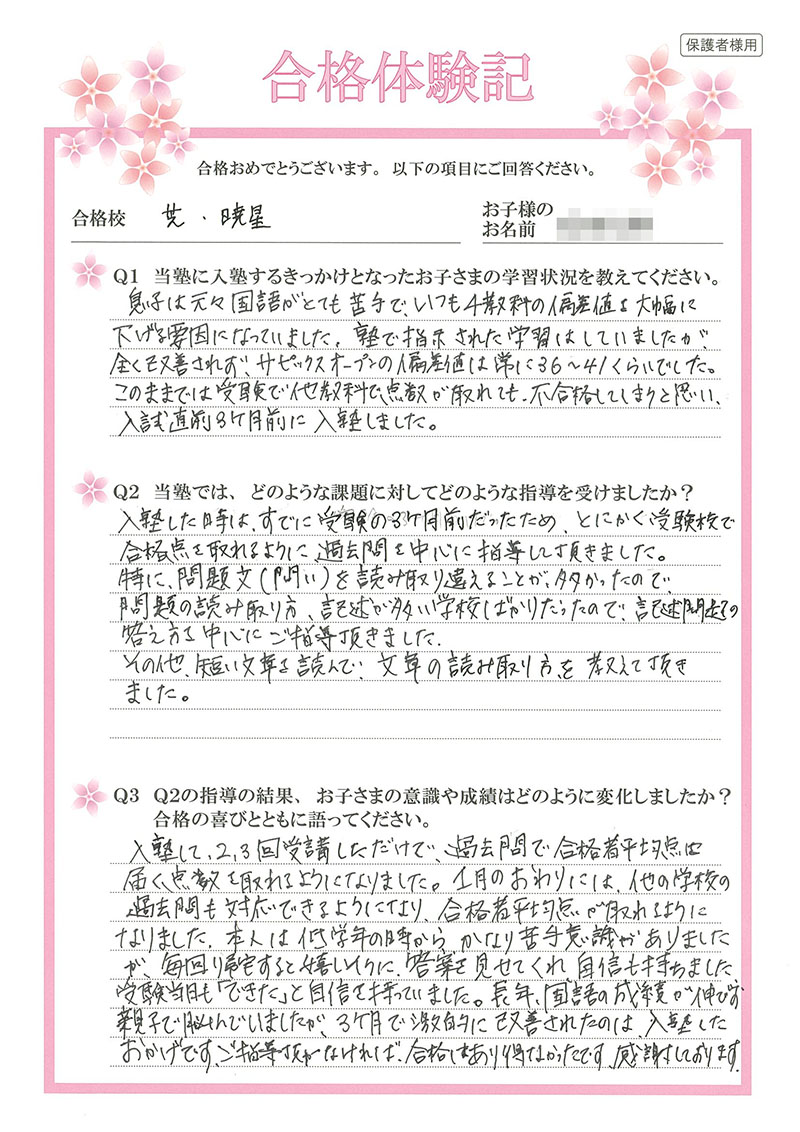 保護者様用
合格体験記
合格おめでとうございます。以下の項目にご回答ください。
合格校 芝・暁星
お子様の
お名前
Q1 当塾に入塾するきっかけとなったお子さまの学習状況を教えてください。
息子は元々国語がとても苦手で、いつも4教科の偏差値を大幅に
下げる要因になっていました。塾で指示された学習はしていましたが、
全く改善されず、サピックスオープンの偏差値は常に36〜41くらいでした。
このままでは受験で他教科で点数が取れても、不合格してしまうと思い、
入試直前3ヶ月前に入塾しました。
Q2 当塾では、どのような課題に対してどのような指導を受けましたか？
入塾した時は、すでに受験の3ヶ月前だったため、とにかく受験校で
合格点を取れるように過去問を中心に指導して頂きました。
特に、問題文(問い)を読み取り違えることが多かったので、
問題の読み取り方、記述が多い学校ばかりだったので、記述問題の
答え方を中心にご指導頂きました。
その他、短い文章を読んで、文章の読み取り方を教えて頂き
ました。
Q3 Q2の指導の結果、お子さまの意識や成績はどのように変化しましたか？
合格の喜びとともに語ってください。
入塾して、2,3回受講しただけで、過去問で合格者平均点に
届く点数を取れるようになりました。1月のおわりには、他の学校の
過去問も対応できるようになり、合格者平均点が取れるように
なりました。本人は低学年の時からかなり苦手意識がありました
が、毎回り帰宅すると嬉しそうに、答案を見せてくれ自信も持ちました。
受験当日も「できた」と自信を持っていました。長年、国語の成績が伸びず
親子で悩んでいましたが、3ヶ月で激的に改善されたのは、入塾した
おかげです。ご指導頂がなければ、合格はあり得なかったです。感謝しております。